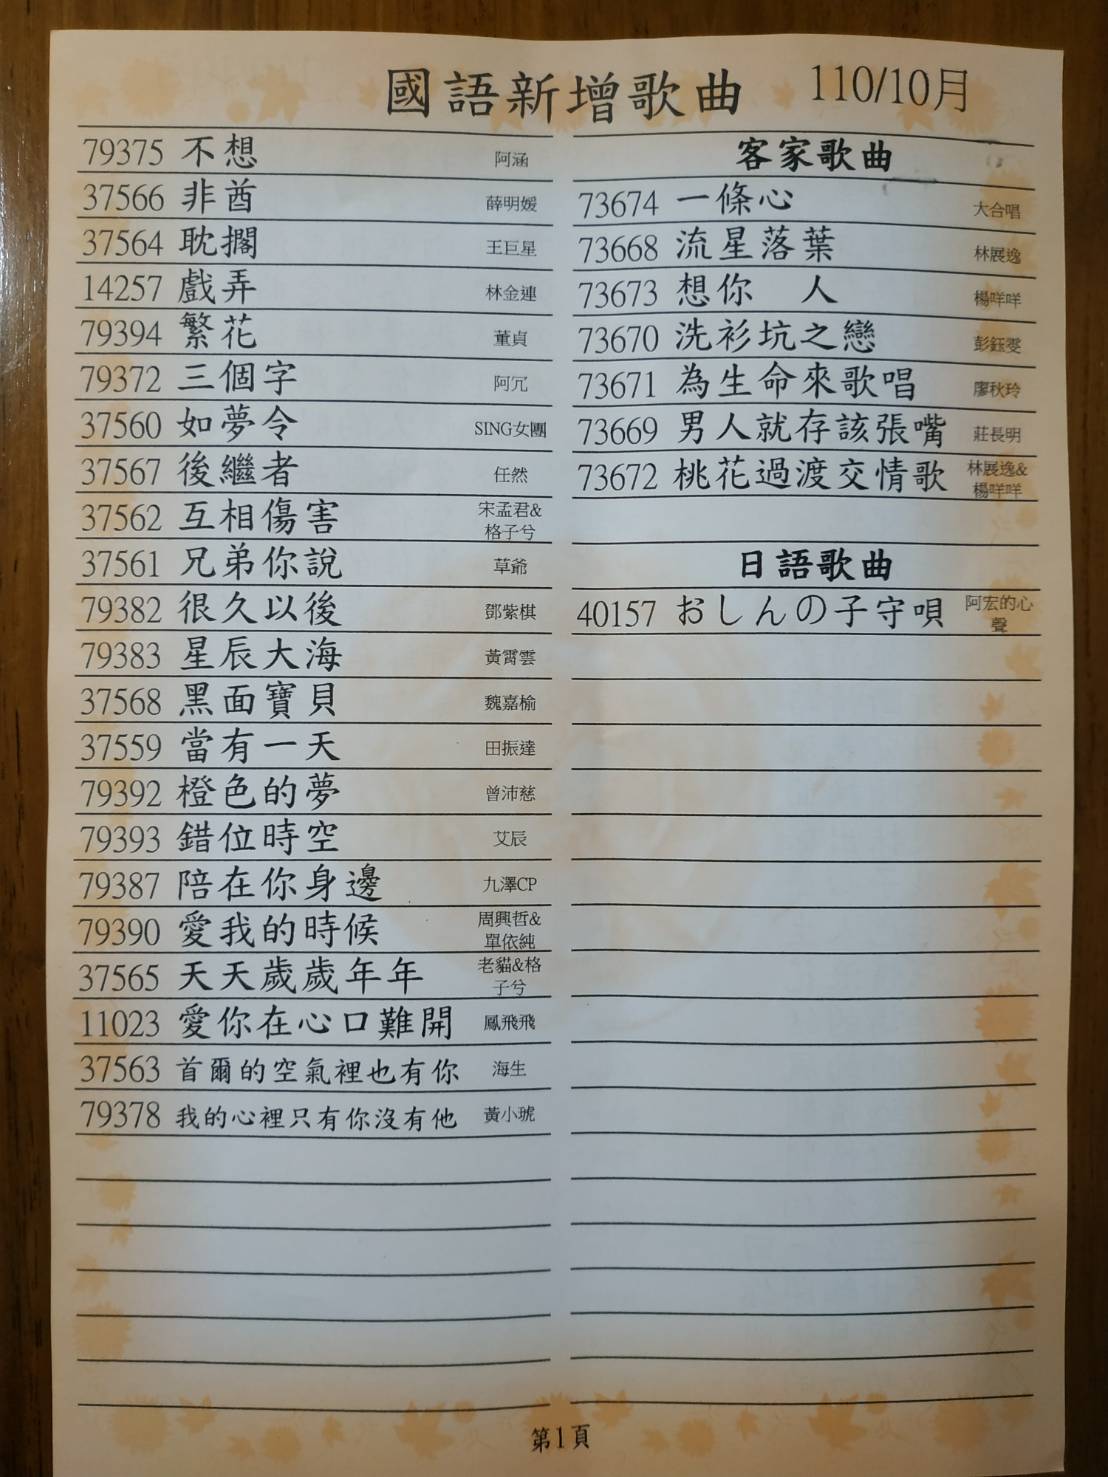 國語新增歌曲 110/10月
79375 不想 阿涵
37566 非酋 薛明媛
37564 耽擱 王巨星
14257 戲弄 林金連
79394 繁花 董貞
79372 三個字 阿冗
37560 如夢令 SING女團
37567 後繼者 任然
37562 互相傷害 宋孟君&格子兮
37561 兄弟你說 草爺
79382 很久以後 鄧紫棋
79383 星辰大海 黃霄雲
37568 黑面寶貝 魏嘉榆
37559 當有一天 田振達
79392 橙色的夢 曾沛慈
79393 錯位時空 艾辰
79387 陪在你身邊 九澤CP
79390 愛我的時候 周興哲&單依純
37565 天天歲歲年年 老貓&格子兮
11023 愛你在心口難開 鳳飛飛
37563 首爾的空氣裡也有你 海生
79378 我的心裡只有你沒有他 黃小琥
客家歌曲
73674 一條心 大合唱
73668 流星落葉 林展逸
73673 想你 人 楊咩咩
73670 洗衫坑之戀 彭鈺雯
73671 為生命來歌唱 廖秋玲
73669 男人就存該張嘴 莊長明
73672 桃花過渡交情歌 林展逸&楊咩咩
日語歌曲
40157 おしんの子守唄 阿宏的心聲
第1頁